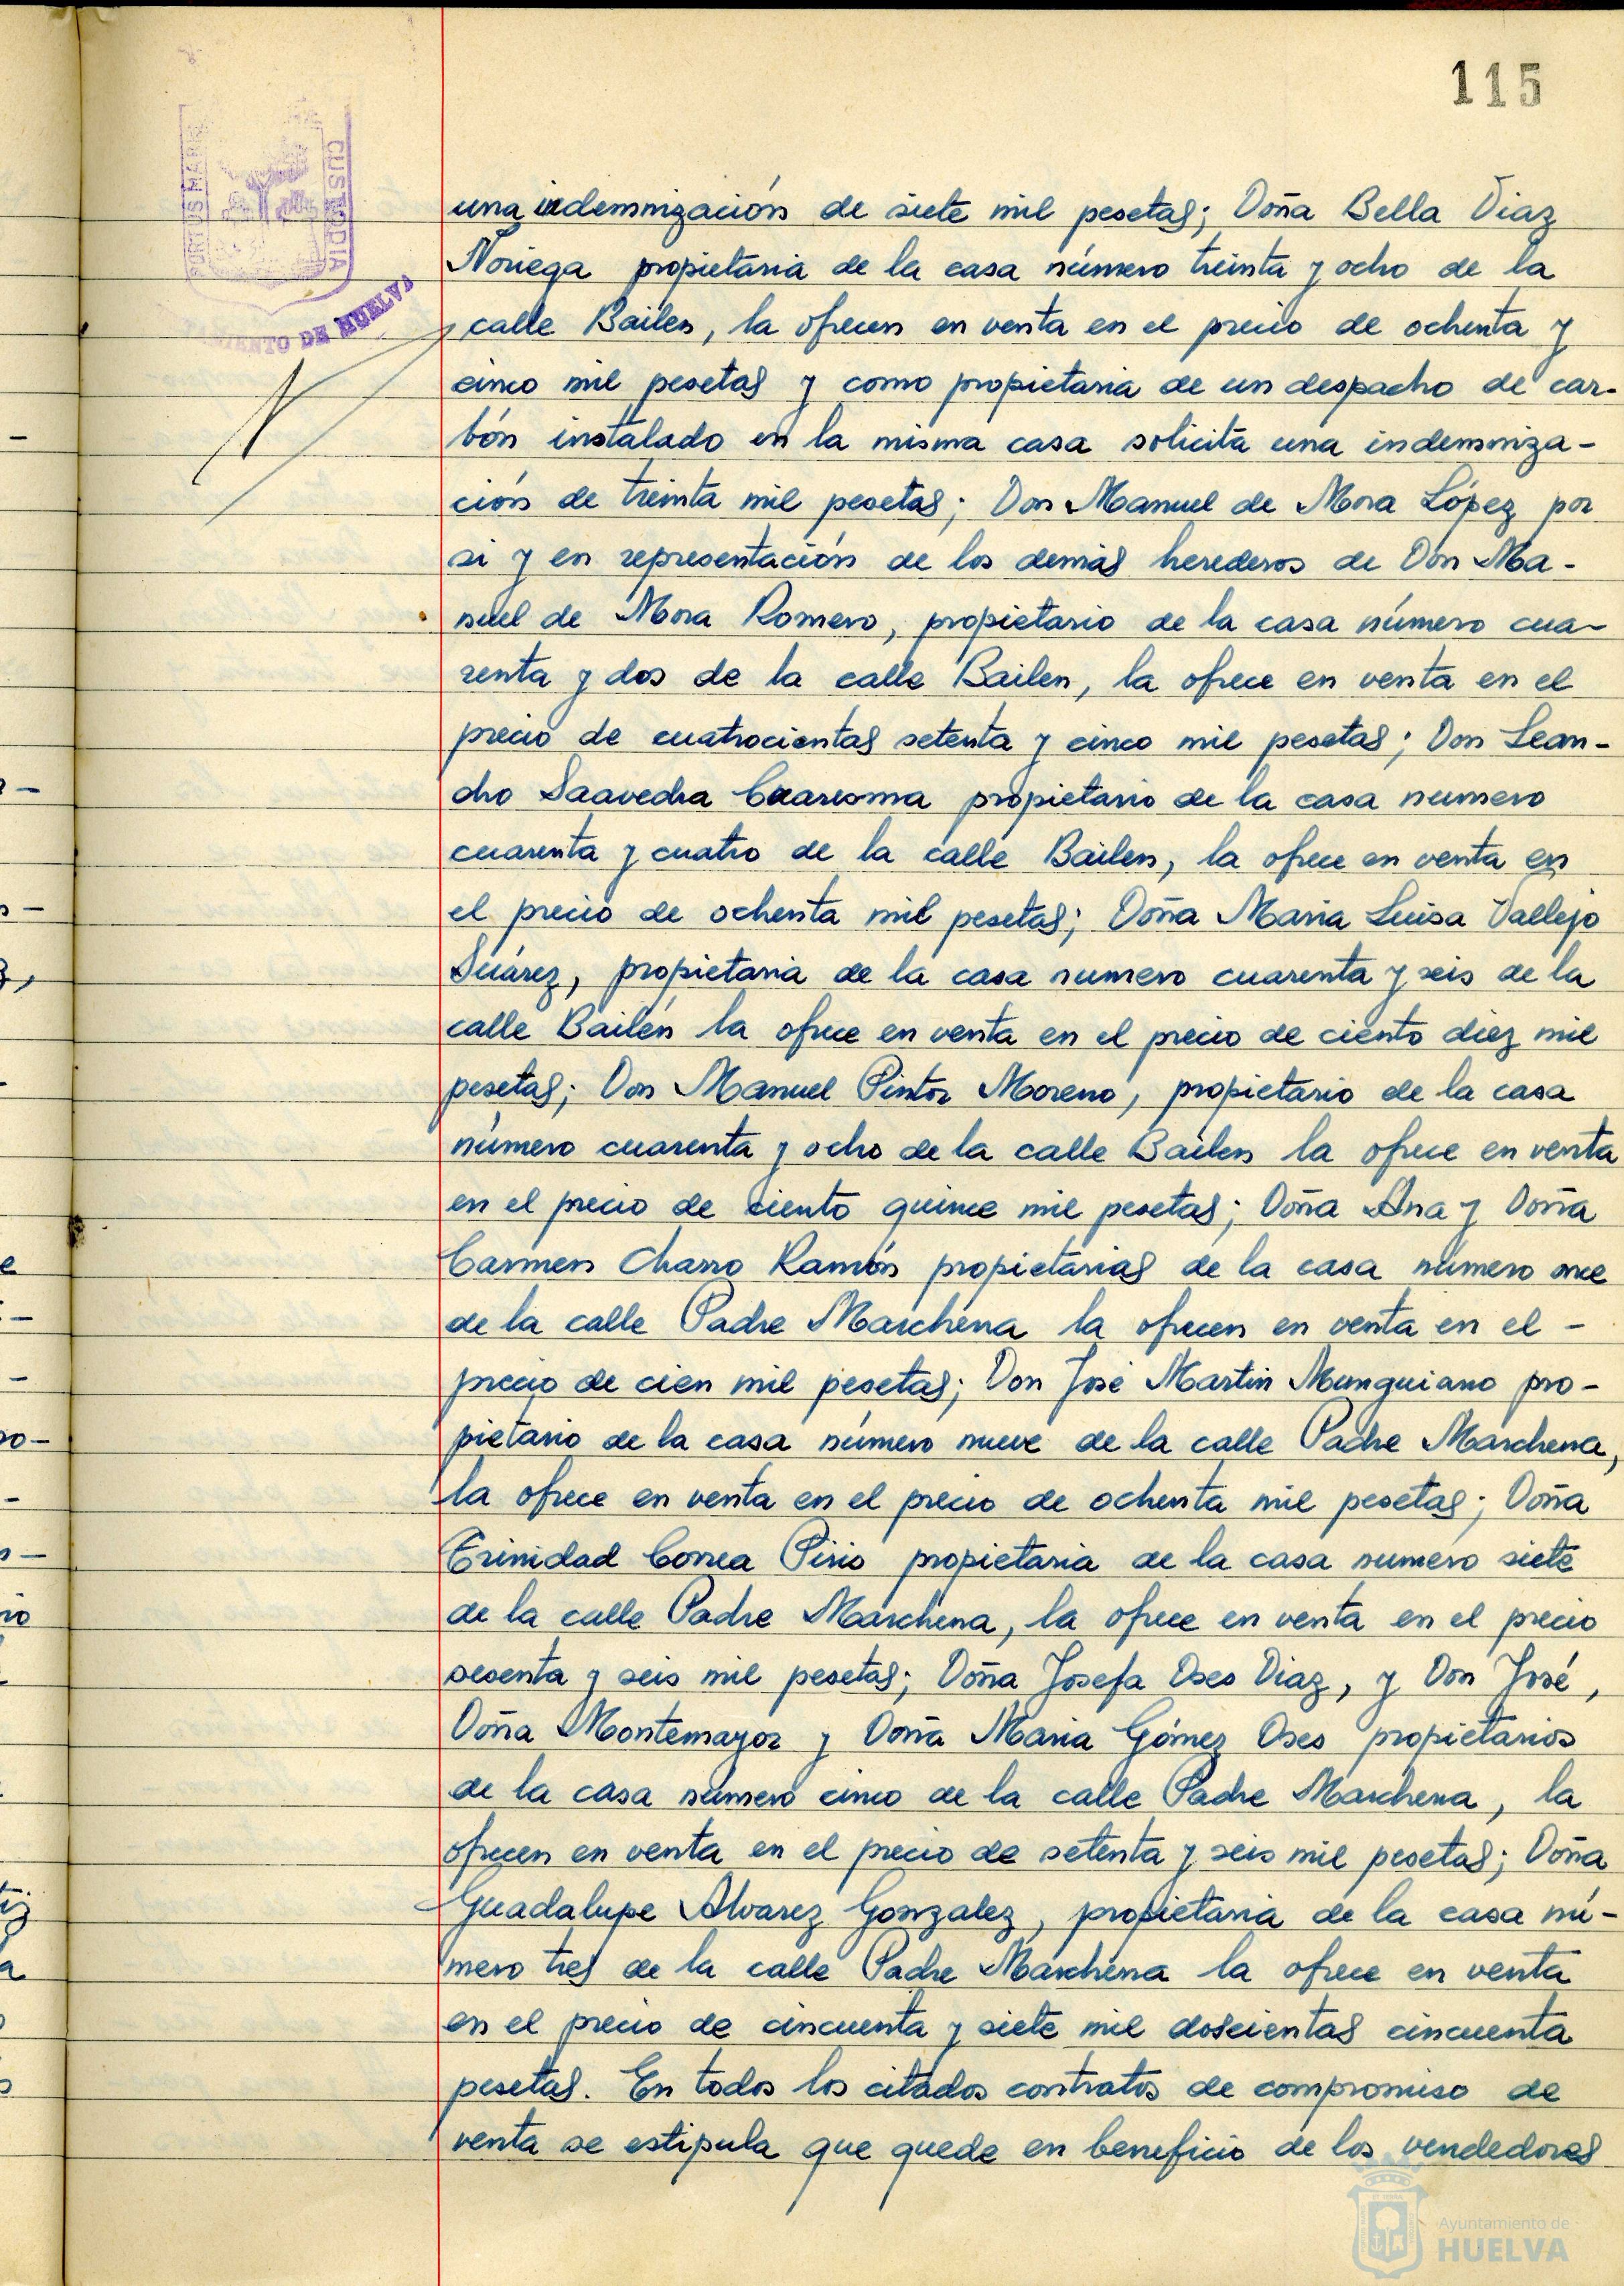 115
PORTUS MARIS
CUSTODIA
TAMIENTO DE HUELVA
una indemnización de siete mil pesetas; Doña Bella Diaz
Noriega propietaria de la casa número treinta y ocho de la
calle Bailen, la ofrecen en venta en el precio de ochenta y
cinco mil pesetas y como propietaria de un despacho de car-
bón instalado en la misma casa solicita una indemniza-
ción de treinta mil pesetas; Don Manuel de Mora López por
si y en representación de los demás herederos de Don Ma-
nuel de Mora Romero, propietario de la casa número cua-
renta y dos de la calle Bailen, la ofrece en venta en el
precio de cuatrocientas setenta y cinco mil pesetas; Don Lean-
dro Saavedra Cuaresma propietario de la casa numero
cuarenta y cuatro de la calle Bailen, la ofrece en venta en
el precio de ochenta mil pesetas; Doña Maria Luisa Vallejo
Suárez, propietaria de la casa numero cuarenta y seis de la
calle Bailén la ofrece en venta en el precio de ciento diez mil
pesetas; Don Manuel Pintor Moreno, propietario de la casa
número cuarenta y ocho de la calle Bailen la ofrece en venta
en el precio de ciento quince mil pesetas; Doña Ana y Doña
Carmen Charro Ramón propietarias de la casa número once
de la calle Padre Marchena la ofrecen en venta en el -
precio de cien mil pesetas; Don José Martin Munguiano pro-
pietario de la casa número nueve de la calle Padre Marchena,
la ofrece en venta en el precio de ochenta mil pesetas; Doña
Trinidad Correa Pirio propietaria de la casa numero siete
de la calle Padre Marchena, la ofrece en venta en el precio
sesenta y seis mil pesetas; Doña Josefa Oses Diaz, y Don José,
Doña Montemayor y Doña Maria Gómez Oses propietarios
de la casa número cinco de la calle Padre Marchena, la
ofrecen en venta en el precio de setenta y seis mil pesetas; Doña
Guadalupe Alvarez Gonzalez, propietaria de la casa nú-
mero tres de la calle Padre Marchena la ofrece en venta
en el precio de cincuenta y siete mil doscientas cincuenta
pesetas. En todos los citados contratos de compromiso de
venta se estipula que quede en beneficio de los vendedores
Ayuntamiento de
HUELVA